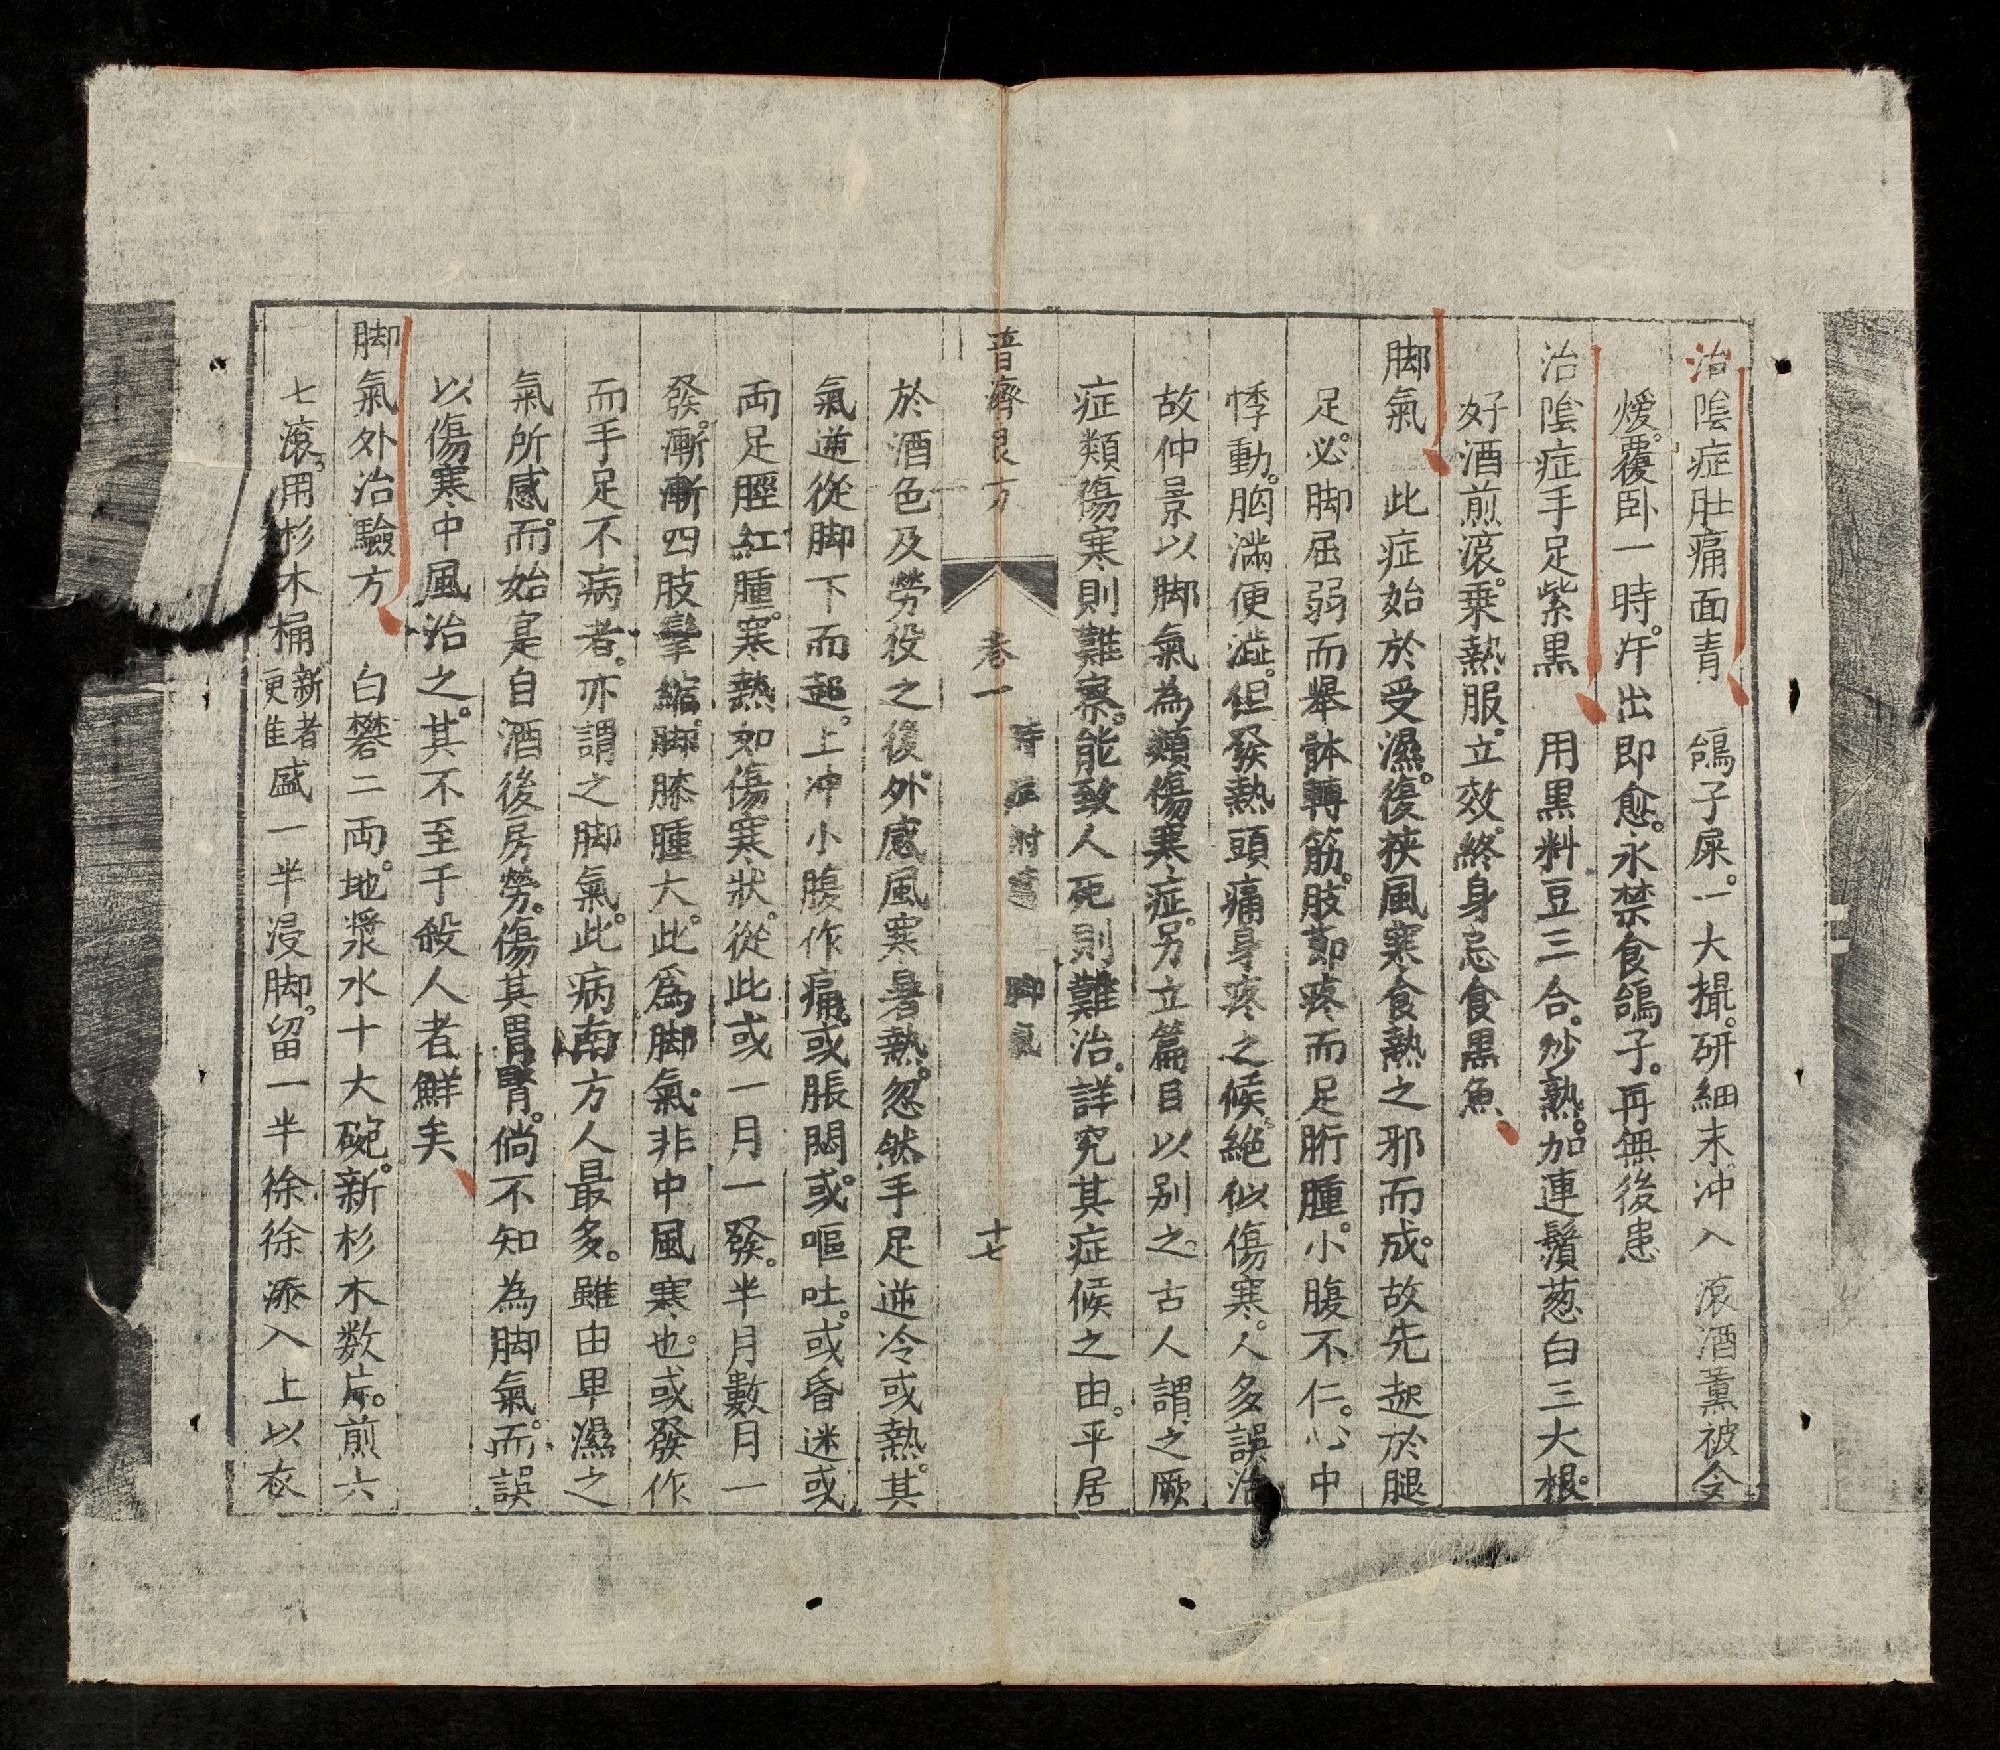 治陰症肚痛面青　鴿子屎。一大撮。研細末。冲入滾酒薰被令
煖。覆卧一時。汗出即愈。永禁食鴿子。再無後患
治陰症手足紫黑　用黑料豆三合。炒熟。加連鬚葱白三大根。
好酒煎滾。乘熱服。立效。終身忌食黑魚
脚氣　此症始於受濕。復挾風寒食熱之邪而成。故先起於腿
足。必脚屈弱而舉體轉筋。肢節疼而足胻腫。小腹不仁。心中
悸動。胸滿便澁。但發熱頭痛身疼之候。絕似傷寒。人多誤治
故仲景以脚氣為類傷寒症。另立篇目以别之。古人謂之厥
症類傷寒則難察。能致人死則難治。詳究其症候之由。平居
普濟良方　卷一　時症附　脚氣　十七
於酒色及勞役之後。外感風寒暑熱。忽然手足逆冷或熱。其
氣逆從脚下而起。上冲小腹作痛。或脹悶。或嘔吐。或昏迷或
両足脛紅腫。寒熱如傷寒狀。從此或一月一發。半月數月一
發。漸漸四肢攣縮。脚膝腫大。此爲脚氣。非中風寒也。或發作
而手足不病者。亦謂之脚氣。此病南方人最多。雖由卑濕之
氣所感。而始寔自酒後房勞。傷其胃腎。倘不知為脚氣。而誤
以傷寒中風治之。其不至于殺人者鮮矣
脚氣外治驗方　白礬二両。地漿水十大碗。新杉木数片。煎六
七滾。用杉木桶新者更佳盛一半浸脚。留一半徐徐添入上以衣